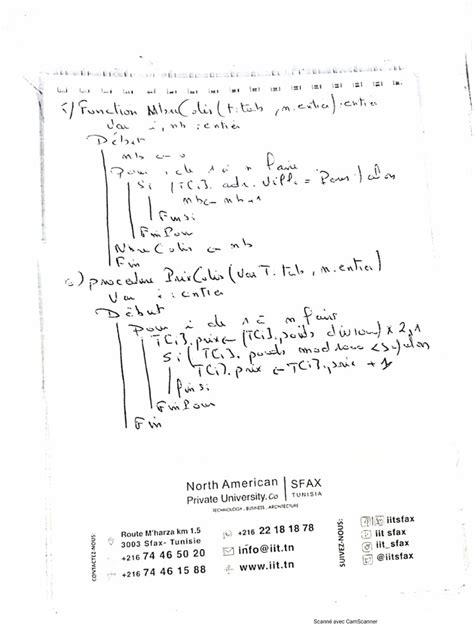 Function NbreColis (T:tab, n:entier):entier
Var i, nb : entier
Début
nb ← 0
Pour i de 1 à n faire
Si (T[i].adr.ville = "Paris") alors
nb ← nb+1
Finsi
FinPour
NbreColis ← nb
Fin
procedure PrixColis (Var T:tab, n:entier)
Var i : entier
Début
Pour i de 1 à n faire
T[i].prix ← (T[i].poids div 1000) × 2,1
Si (T[i].poids mod 1000 <> 0) alors
T[i].prix ← T[i].prix + 1
finsi
FinPour
Fin
North American
Private University.Co
SFAX
TUNISIA
TECHNOLOGY . BUSINESS . ARCHITECTURE
CONTACTEZ-NOUS:
Route M'harza km 1.5
3003 Sfax- Tunisie
+216 74 46 50 20
+216 74 46 15 88
+216 22 18 18 78
info@iit.tn
www.iit.tn
SUIVEZ-NOUS:
iitsfax
iit sfax
iit_sfax
@iitsfax
Scanné avec CamScanner